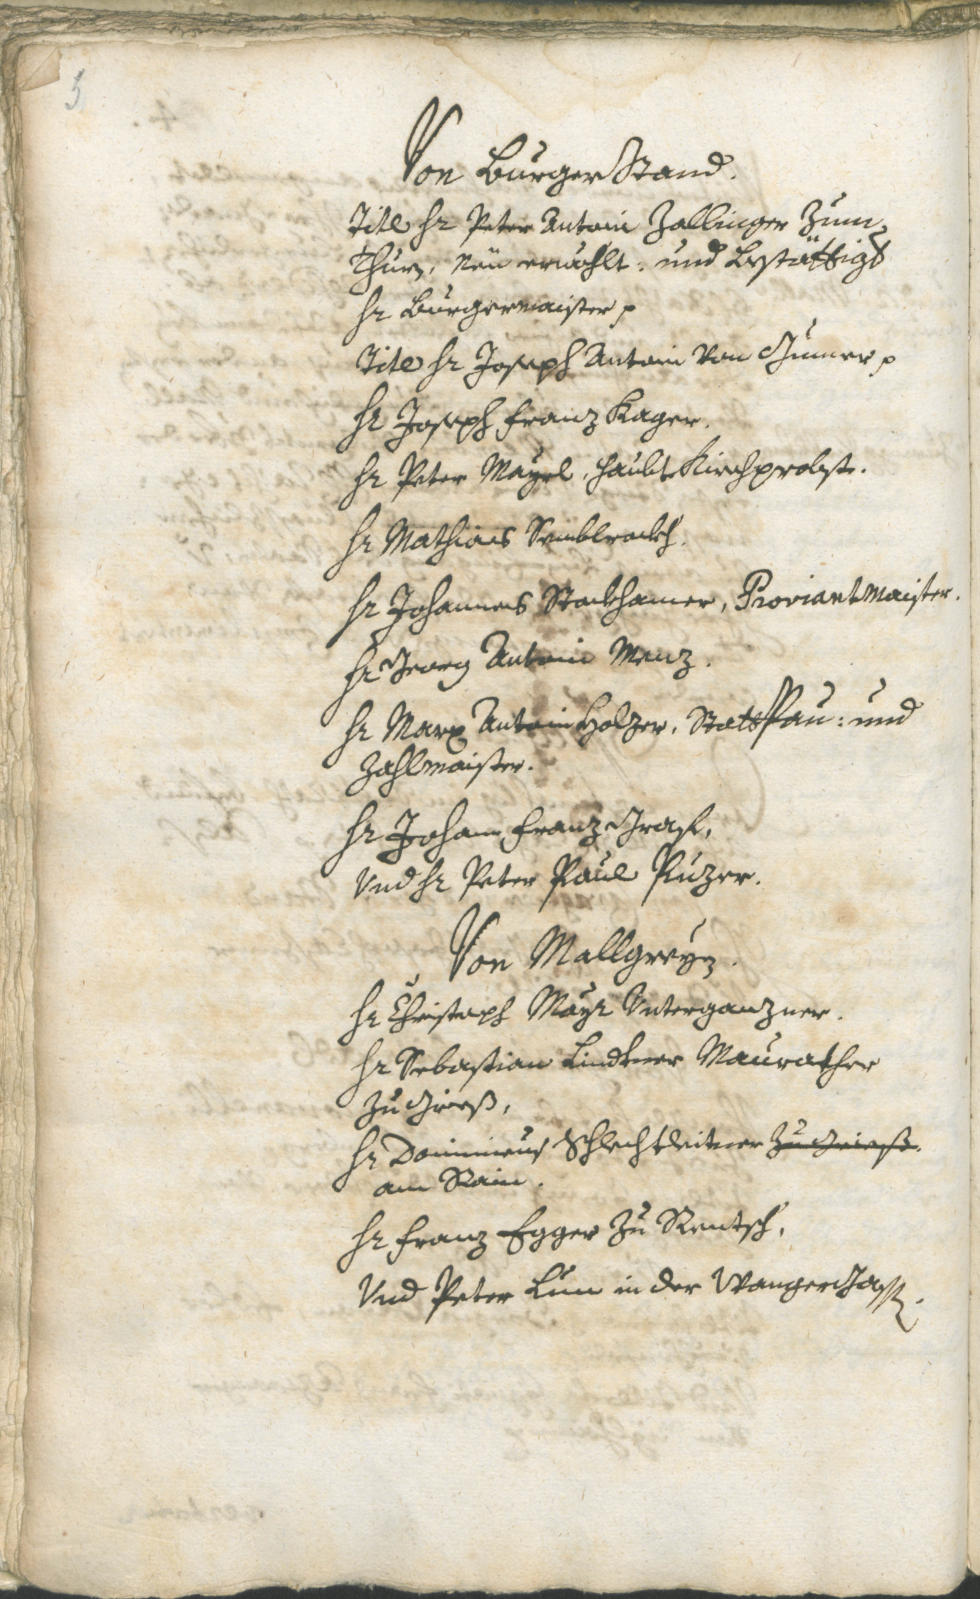 5
Von Burger Stand.
Titl Hr Peter Antoni Zallinger zum
Thurn, Neu erwöhlt: und Bestättigt
Hr Burgermaister p
Titl Hr Joseph Antoni Von Gumer p
Hr Joseph Franz Kager.
Hr Peter Mayrl, Haubt Kirchprobst.
Hr Mathias Semblrockh.
Hr Johannes Stockhamer, Proviantmaister.
Hr Georg Antoni Menz.
Hr Marx Antoni Holzer, Statt Pau: und
Zahlmaister.
Hr Johann Franz Grass,
Und Hr Peter Paul Puzer.
Von Mallgreyen.
Hr Christoph Mayr Unterganzner.
Hr Sebastian Lindtner Maurather
zu Grieß,
Hr Dominicus Schlechtleitner zu Grieß.
am Rain.
Hr Franz Egger zu Rentsch,
Und Peter Lun in der Wanger Gass.